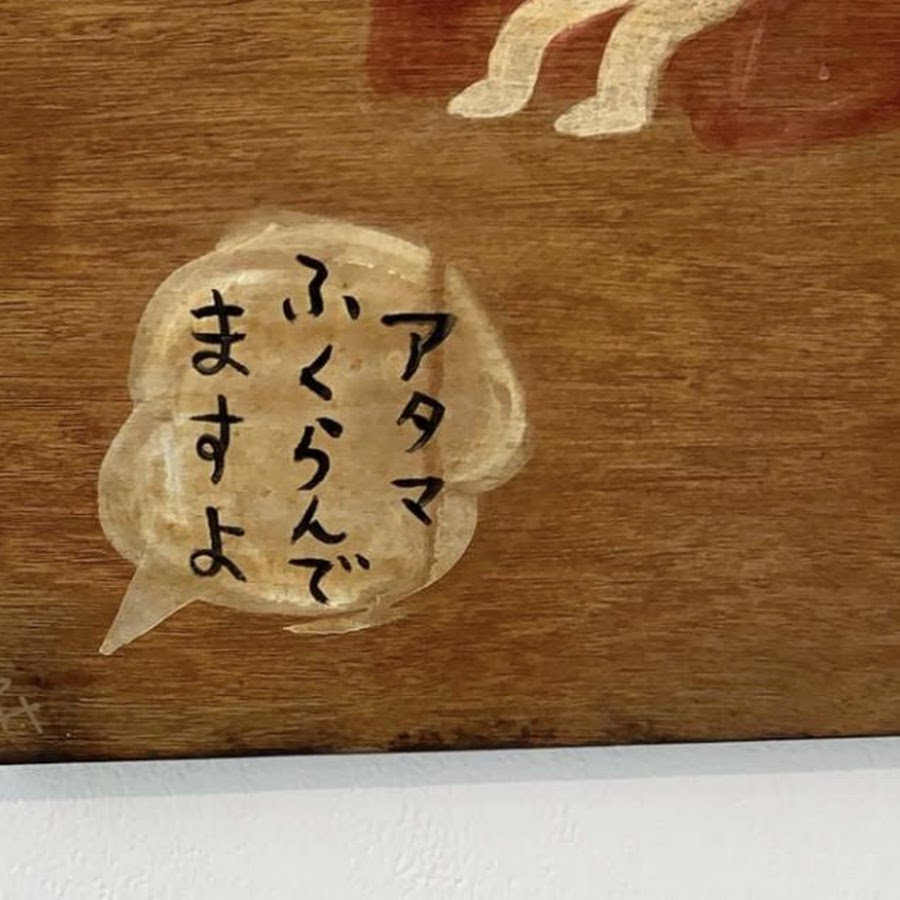 アタマ
ふくらんで
ますよ